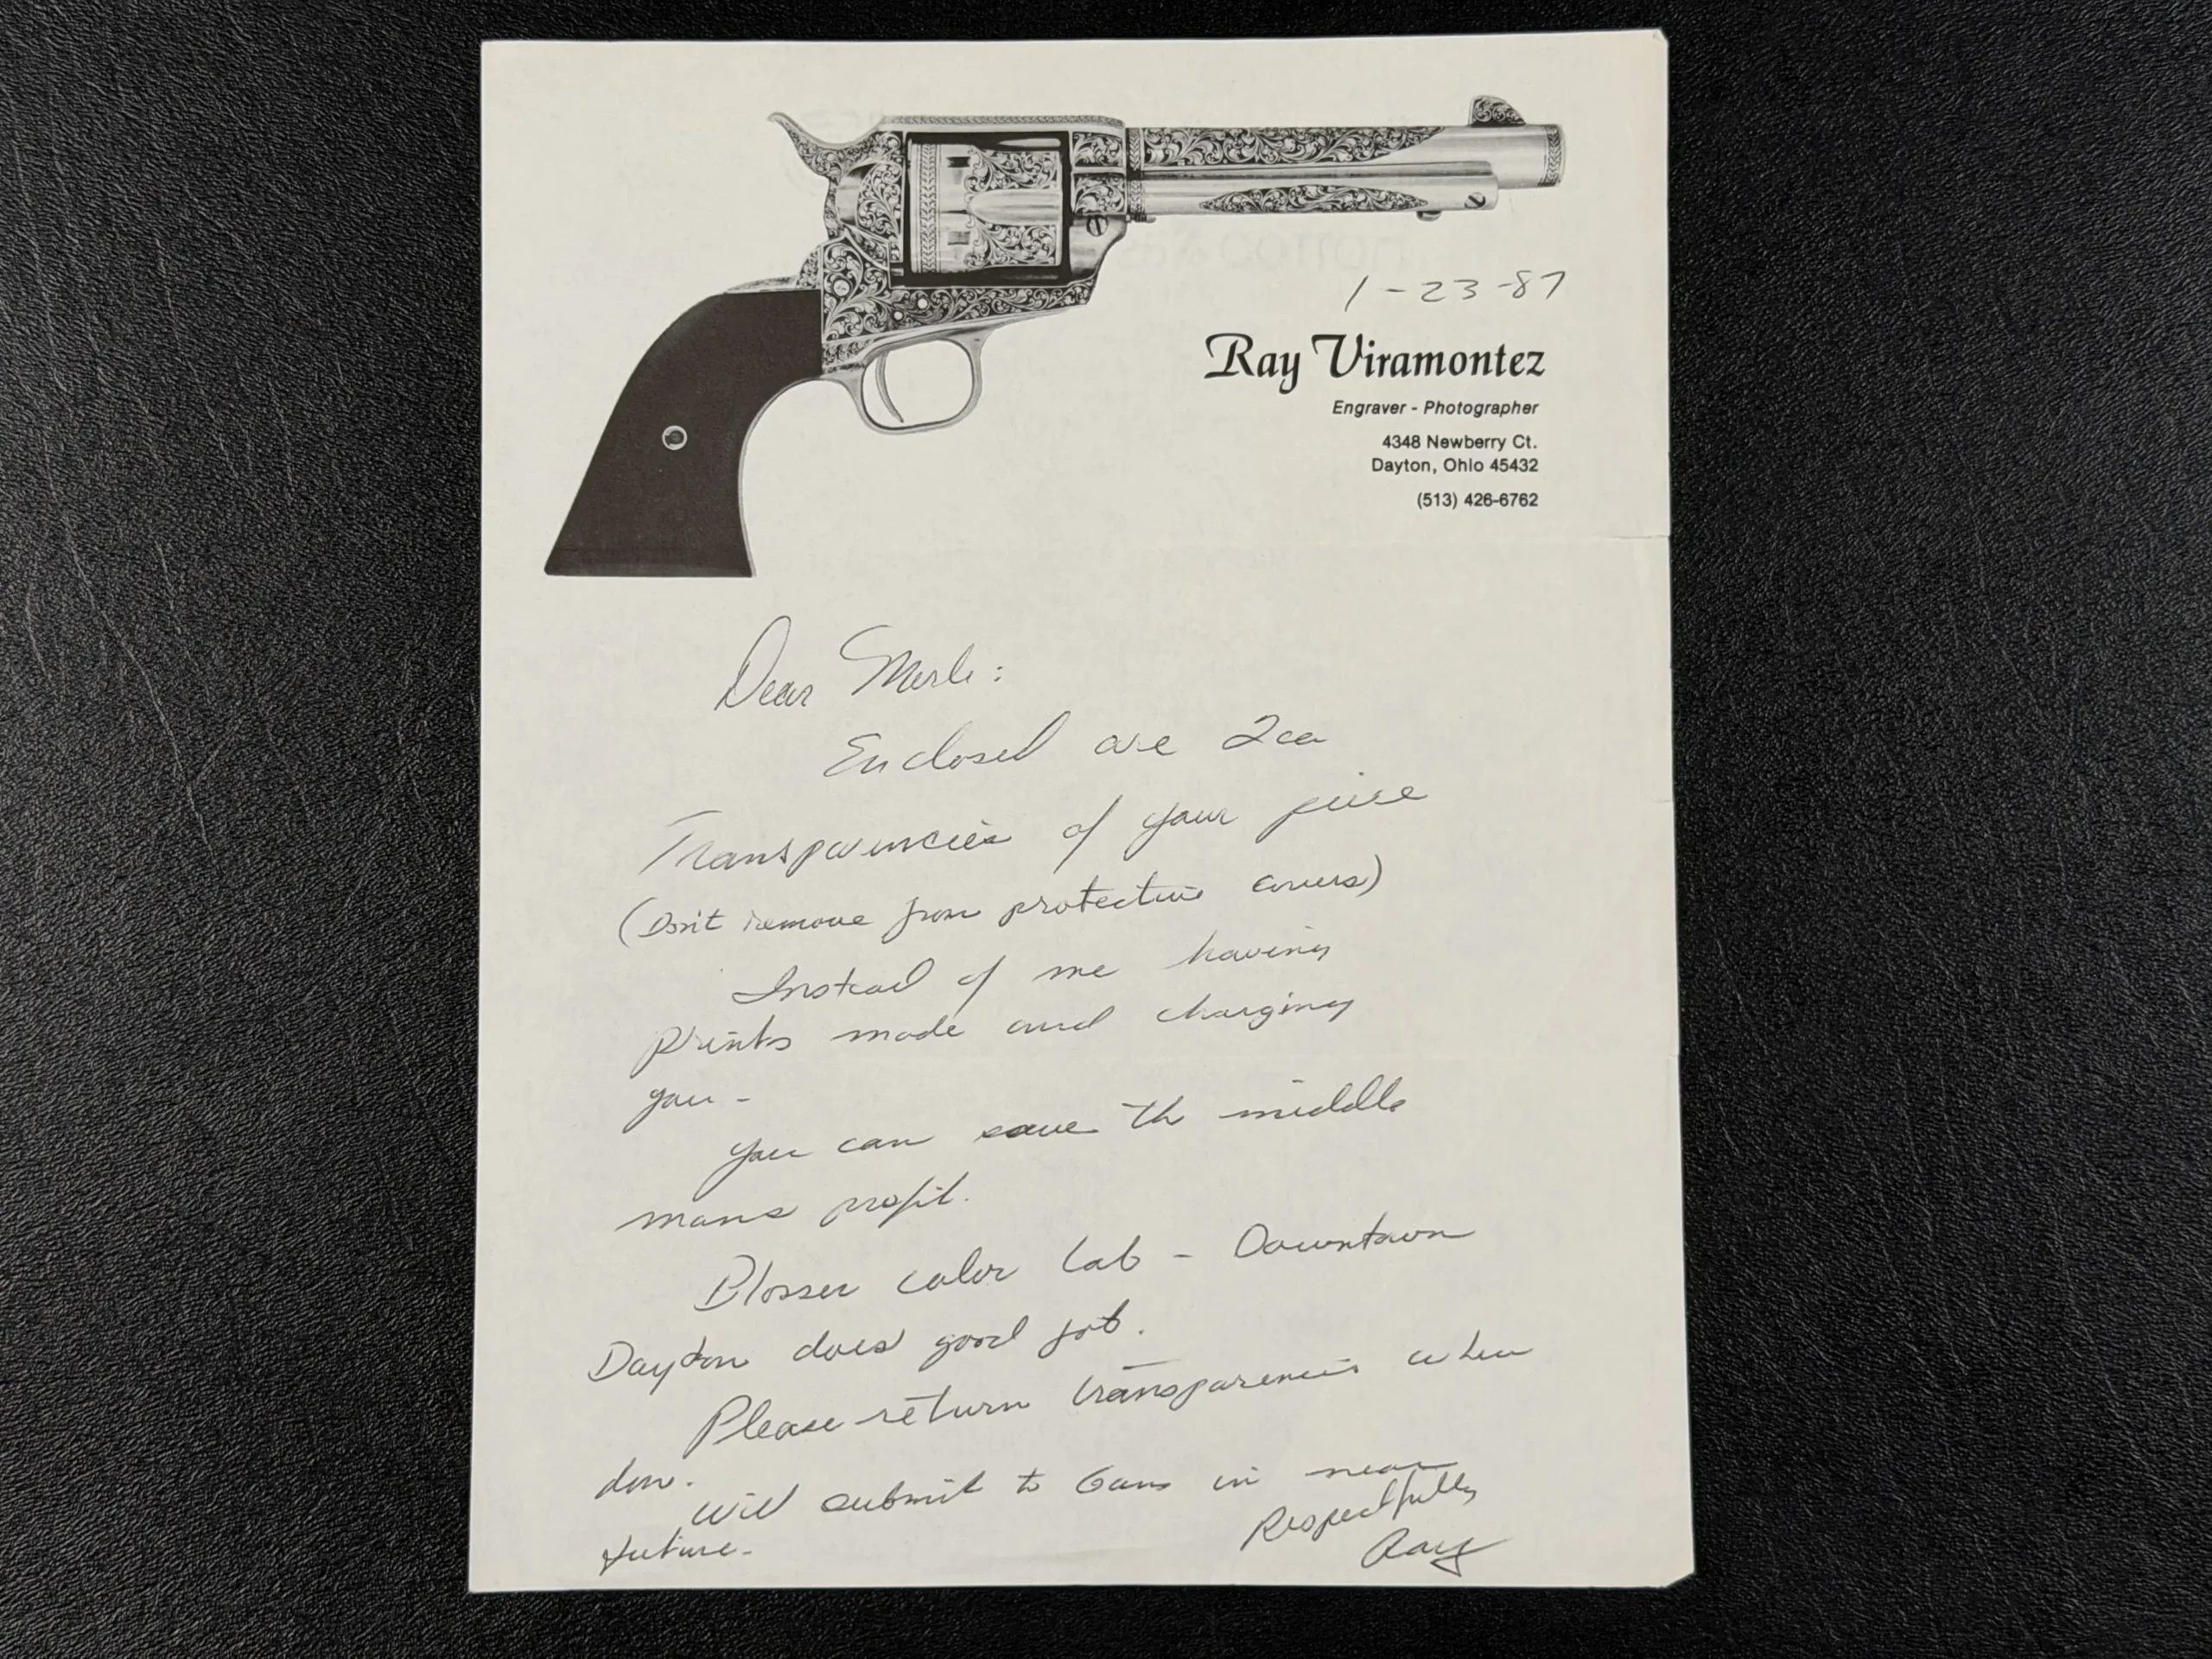 1-23-87
Ray Viramontez
Engraver - Photographer
4348 Newberry Ct.
Dayton, Ohio 45432
(513) 426-6762
Dear Merle:
Enclosed are 2ea
Transparencies of your piece
(Don't remove from protective covers)
Instead of me having
prints made and charging
you -
you can save the middle
mans profit.
Blosser color lab - Downtown
Dayton does good job.
Please return transparencies when
done.
will submit to Guns in near
future.
Respectfully
Ray